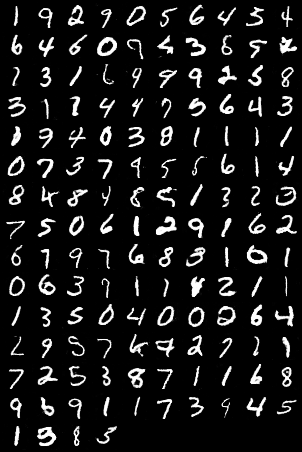 1 9 2 9 0 5 6 4 5 4
6 4 6 0 9 5 3 8 5 2
7 3 1 6 9 9 9 2 5 8
3 1 7 4 4 7 5 6 4 3
1 9 4 0 3 8 1 1 1 1
0 7 3 7 9 5 5 6 1 4
8 4 8 4 8 5 1 3 2 3
7 5 0 6 1 2 9 1 6 2
6 7 9 7 6 8 3 1 0 1
0 6 3 7 1 1 8 2 1 1
1 3 5 0 4 0 0 2 6 4
2 9 5 7 6 7 2 7 2 1
7 2 5 3 8 7 1 1 6 8
9 6 9 1 1 7 3 9 4 5
1 5 8 3